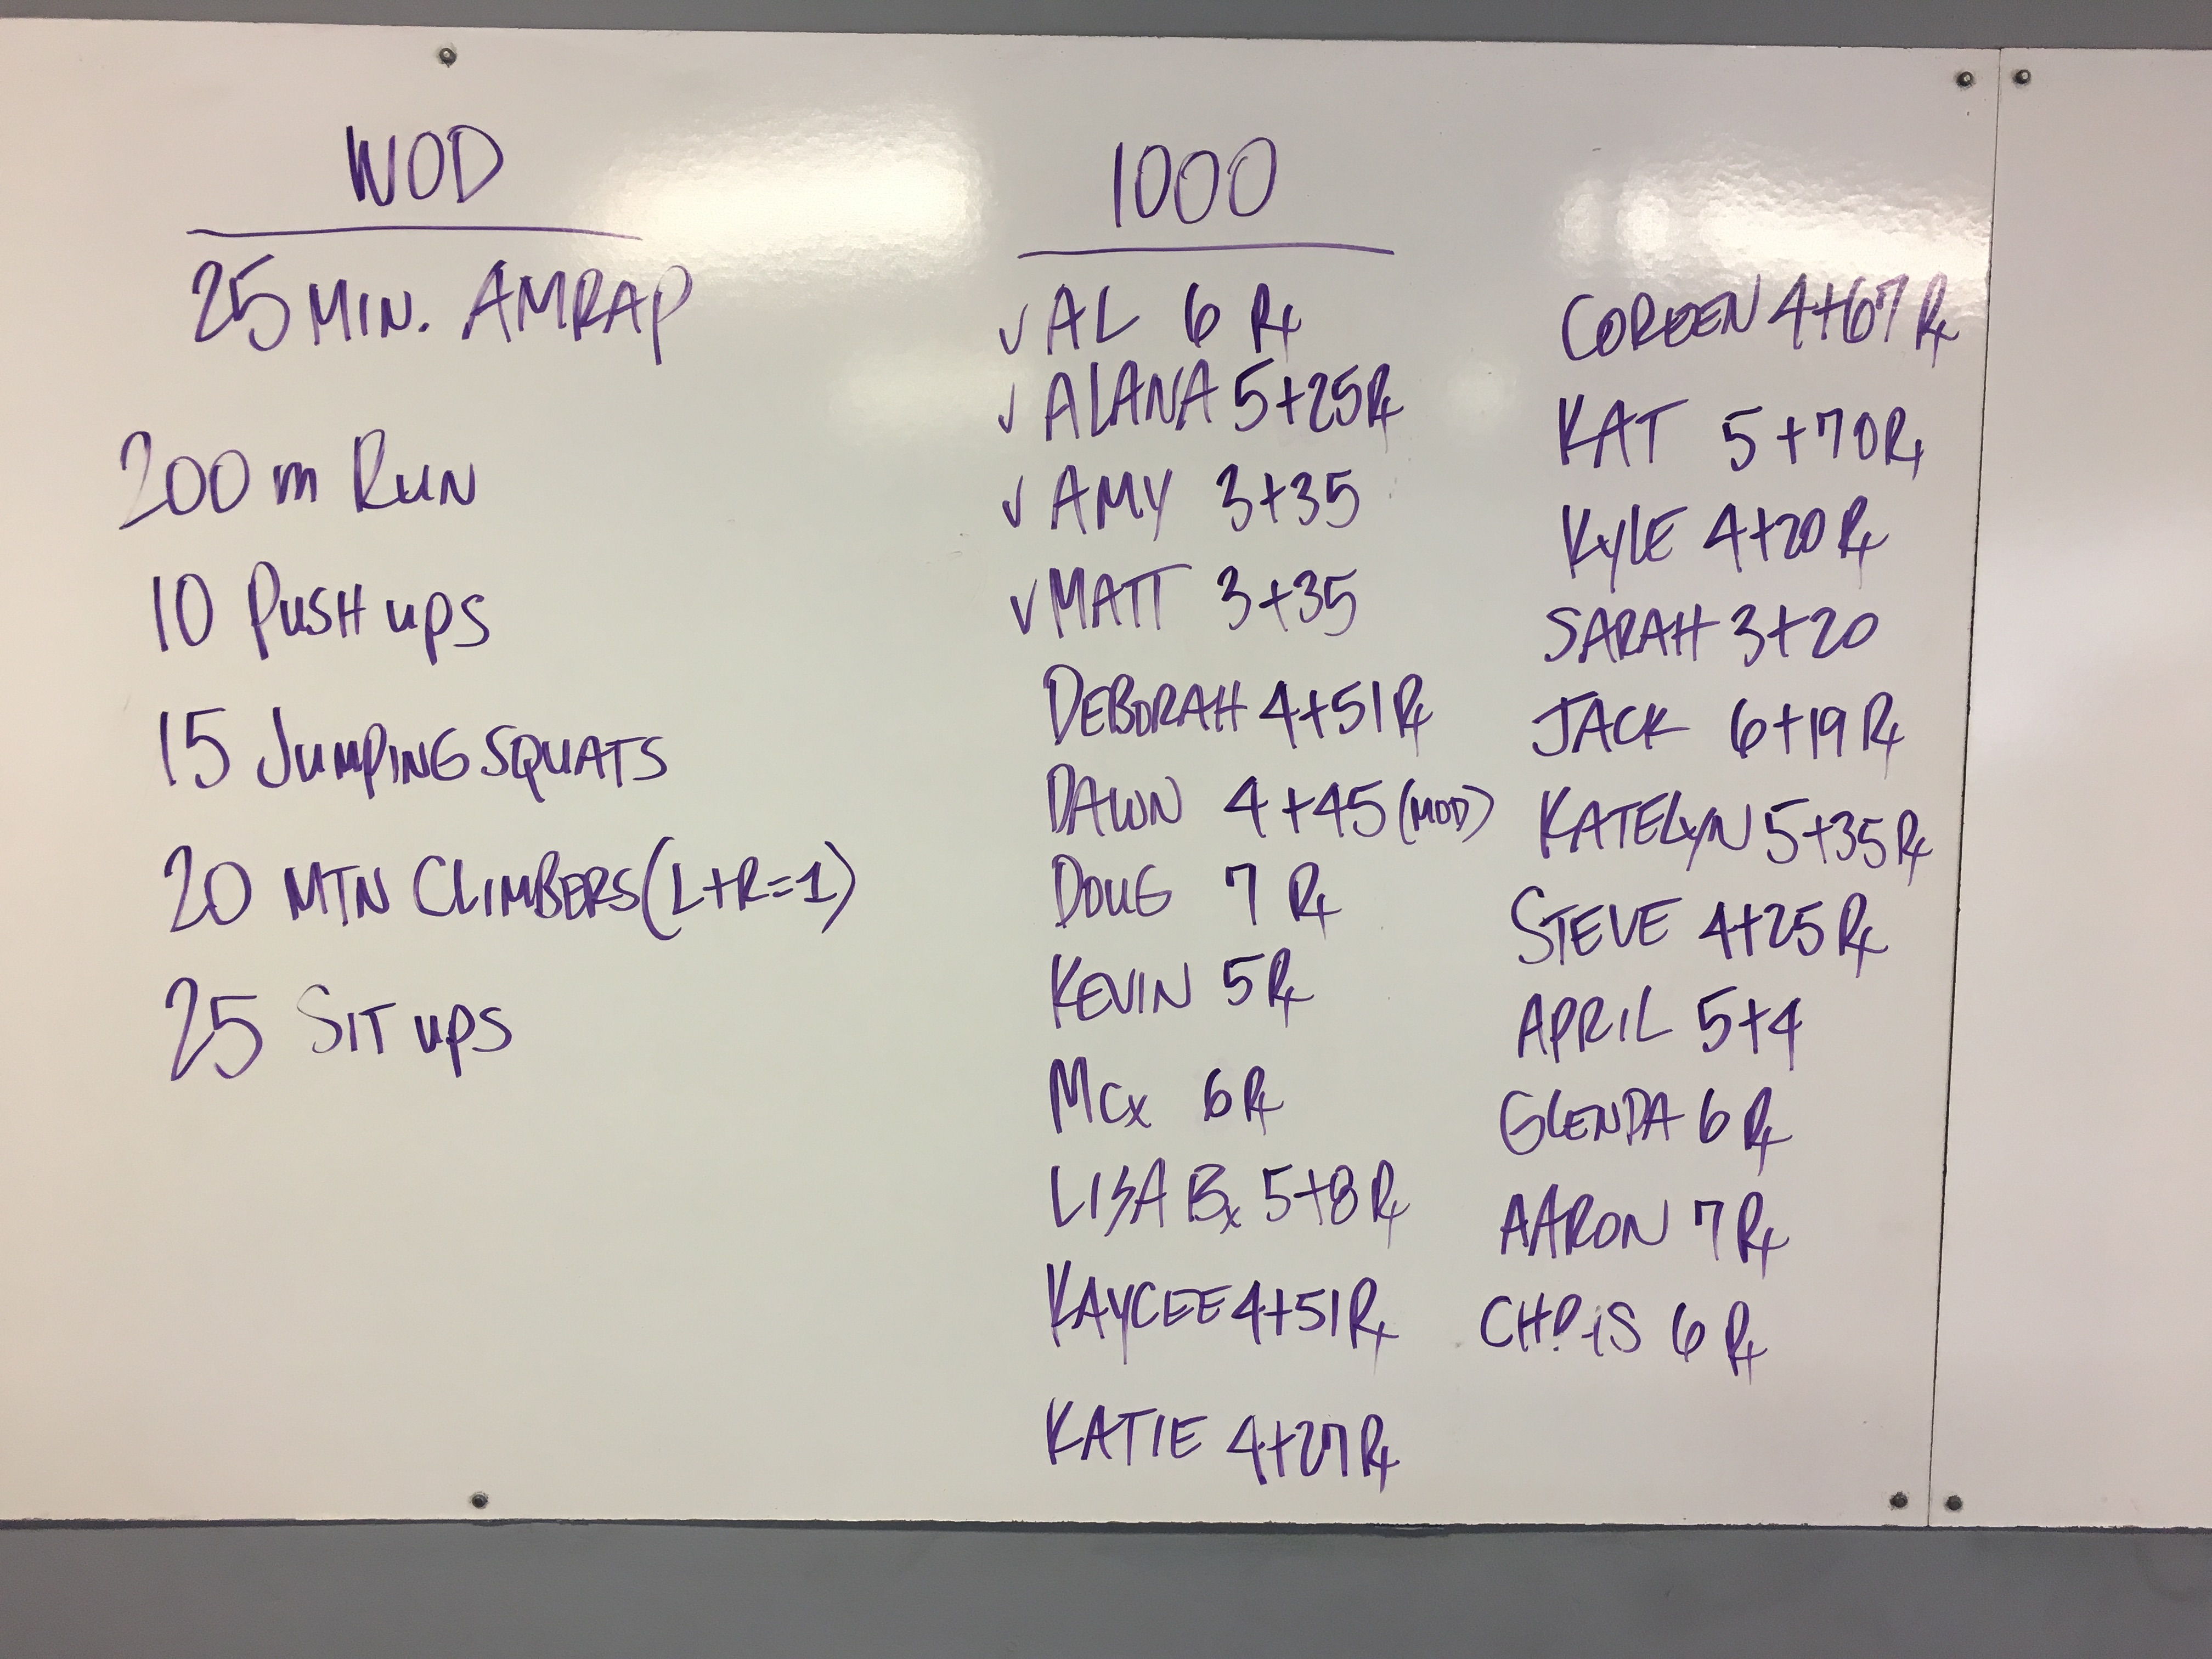 WOD
25 MIN. AMRAP
200 m RUN
10 PUSH UPS
15 JUMPING SQUATS
20 MTN CLIMBERS (L+R=1)
25 SIT UPS
1000
✓ AL 6 Rx
✓ ALANA 5+25 Rx
✓ AMY 3+35
✓ MATT 3+35
DEBORAH 4+51 Rx
DAWN 4+45 (MOD)
DOUG 7 Rx
KEVIN 5 Rx
MCx 6 Rx
LISA Bx 5+8 Rx
KAYCEE 4+51 Rx
KATIE 4+27 Rx
COREEN 4+67 Rx
KAT 5+70 Rx
KYLE 4+20 Rx
SARAH 3+20
JACK 6+19 Rx
KATELYN 5+35 Rx
STEVE 4+25 Rx
APRIL 5+4
GLENDA 6 Rx
AARON 7 Rx
CHRiS 6 Rx